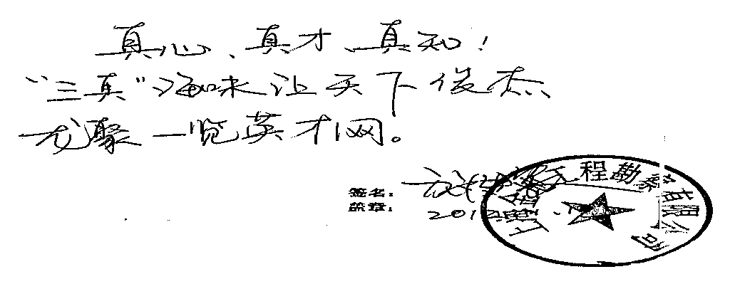 真心、真才、真知！
“三真”海来让天下俊杰
龙聚一览英才网。
签名：
盖章： 201
上海 工程勘察有限公司